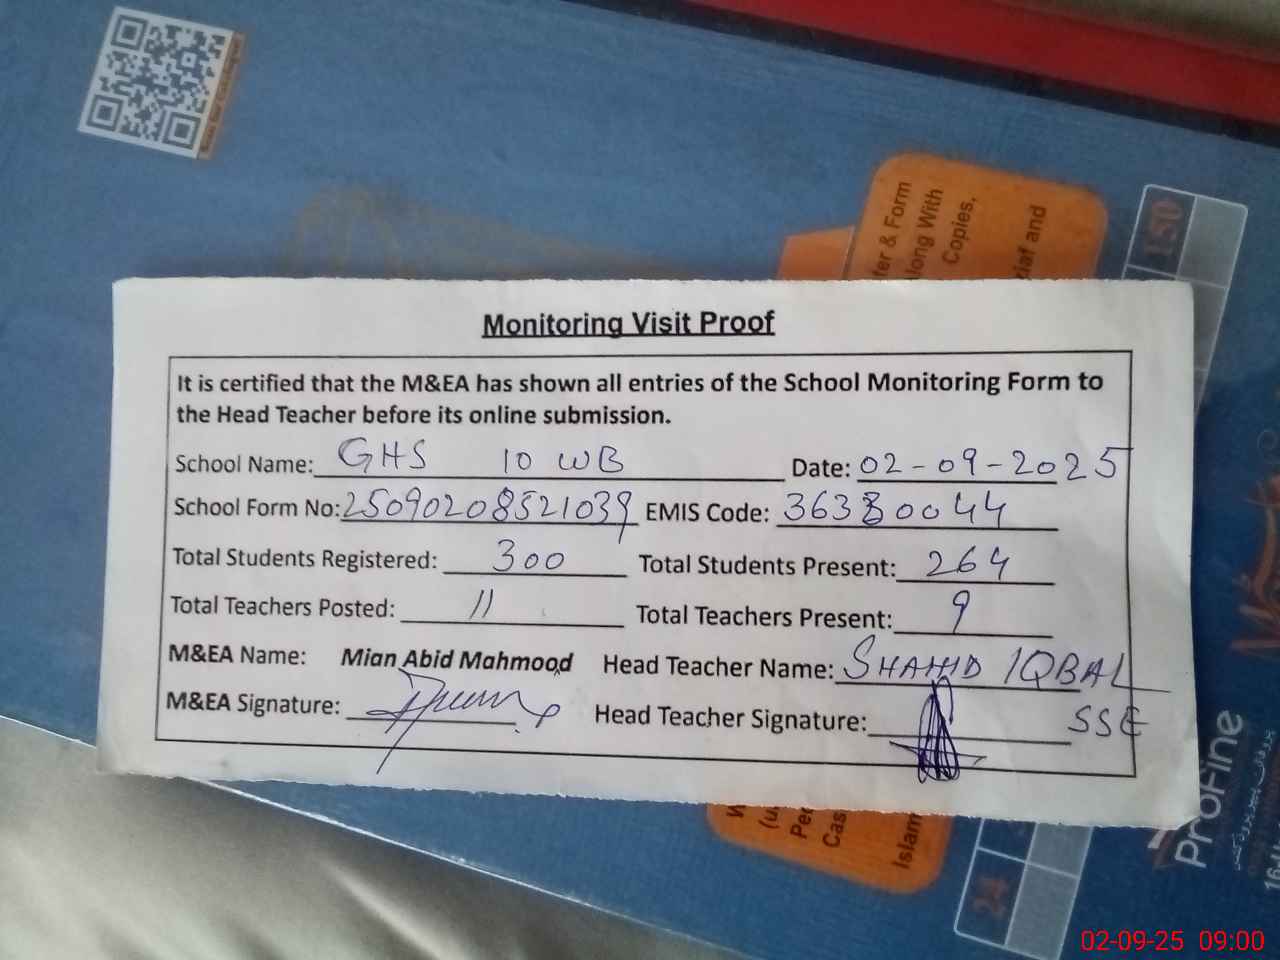 Monitoring Visit Proof
It is certified that the M&EA has shown all entries of the School Monitoring Form to
the Head Teacher before its online submission.
School Name: GHS 10 WB Date: 02-09-2025
School Form No: 25090208521039 EMIS Code: 36380044
Total Students Registered: 300 Total Students Present: 264
Total Teachers Posted: 11 Total Teachers Present: 9
M&EA Name: Mian Abid Mahmood Head Teacher Name: SHAHID IQBAL
M&EA Signature: Head Teacher Signature: SSE
ter & Form
long With
Copies,
and
150
Islam
24
ProFine
02-09-25 09:00